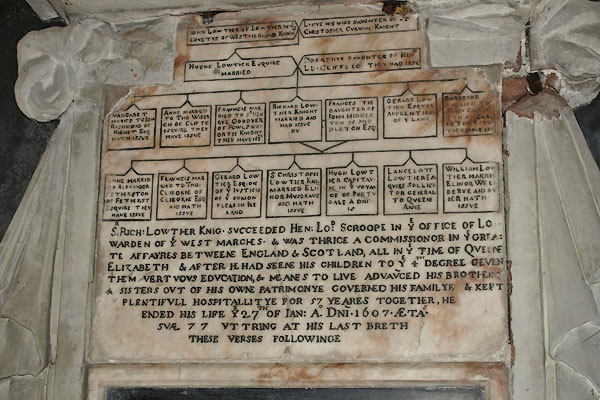 JOHN LOWTHER OF LOWTHER IN Y
COVETYE OF WESTMERLAND KNIGH
LUCYE HIS WIFE DAUGHTER OF SR
CHRISTOPHER CURWIN KNIGHT
HUGHE LOWTHER ESQUIRE
MARRIED
DOROTHYE DAUGHTER OF HEN
L CLIFFORD THEY HAD ISSVE
MARGARET
MARRIED TO
OF
HIGHT ESQ
HATH ISSUE
ANNE MARRIED
TO THO WIBER
OF CLIFTO ES
QUIRE THEY
HAVE ISSUE
FRAWNCIS MAR
RIED TO SR HEN
RYE GOODYER
OF POWLSWOR
RTH KNIGHT
THEY HAVE ISSE
RICHARD LOW
THER KNIGHT
MARRIED AND
HAD ISSUE
BY
FRAUNCES THE
DAUGHTER TO
JOHN MIDDL
TON OF MID
DLETON ESQ
GERARD LOW
THER ESQUIR
APPRENTICE
OF Y LAWS
BARBARIE
MARRIED TO
THEY HAVE ISS
ANNE MARRIED
TO ALEXANDER
FETHERSTON
OF FETHERST
ESQUIRE THEY
HAVE ISSUE
FRAWNCIS MAR
RIED TO THO:
CLIBORNE OF
CLIBORNE ESQ
AND HATH
ISSUE
GERARD LOW
THER ESQUIR
Y JUSTICE
OF COMON
PLEAS IN IRE
LAND
S CHRISTOPH
LOWTHER KNI
MARRIED ELI
NOR MUSGRAVE
AND HATH
ISSUE
HUGH LOWTH
ER CAPITAYE
IN Y VOYAGE
OF PORTV
GALE A DNI
LANCELOTT
LOWTHER ES
QUIRE SOLLICI
TOR GENERAL
TO QUEENE
ANNE
WILLIAM LOW
THER MARRIE
ELINOR WEL
BERYE AND BY
HER HATH
ISSUE
S. RICH: LOWTHER KNIG. SUCCEEDED HEN: LOD SCROOPE IN YE OFFICE OF LO
WARDEN OF YE WEST MARCHES. & WAS THRICE A COMMISSIONOR IN YE GREA
TE AFFAYRES BETWEENE ENGLAND & SCOTLAND, ALL IN YE TYME OF QUEENE
ELIZABETH & AFTER HE HAD SEENE HIS CHILDREN TO YE 4TH DEGREE GEVEN
THEM VERTVOUS EDUCATION, & MEANES TO LIVE ADVAUCED HIS BROTHERS
& SISTERS OUT OF HIS OWNE PATRIMONYE GOVERNED HIS FAMILYE & KEPT
PLENTIFULL HOSPITALLITYE FOR 57 YEARES TOGETHER, HE
ENDED HIS LIFE YE 27TH OF IAN: AO. DNI. 1607. ÆTA
SUÆ 77 VTTRING AT HIS LAST BRETH
THESE VERSES FOLLOWINGE